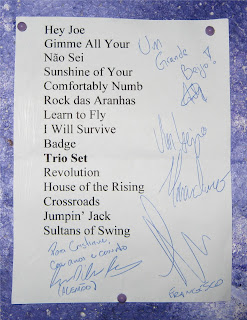 Hey Joe
Gimme All Your
Não Sei
Sunshine of Your
Comfortably Numb
Rock das Aranhas
Learn to Fly
I Will Survive
Badge
Trio Set
Revolution
House of the Rising
Crossroads
Jumpin' Jack
Sultans of Swing
Um
Grande
Beijo!
Para Cristiane,
com amor e carinho
(ALEMÃO)
FRANCESCO